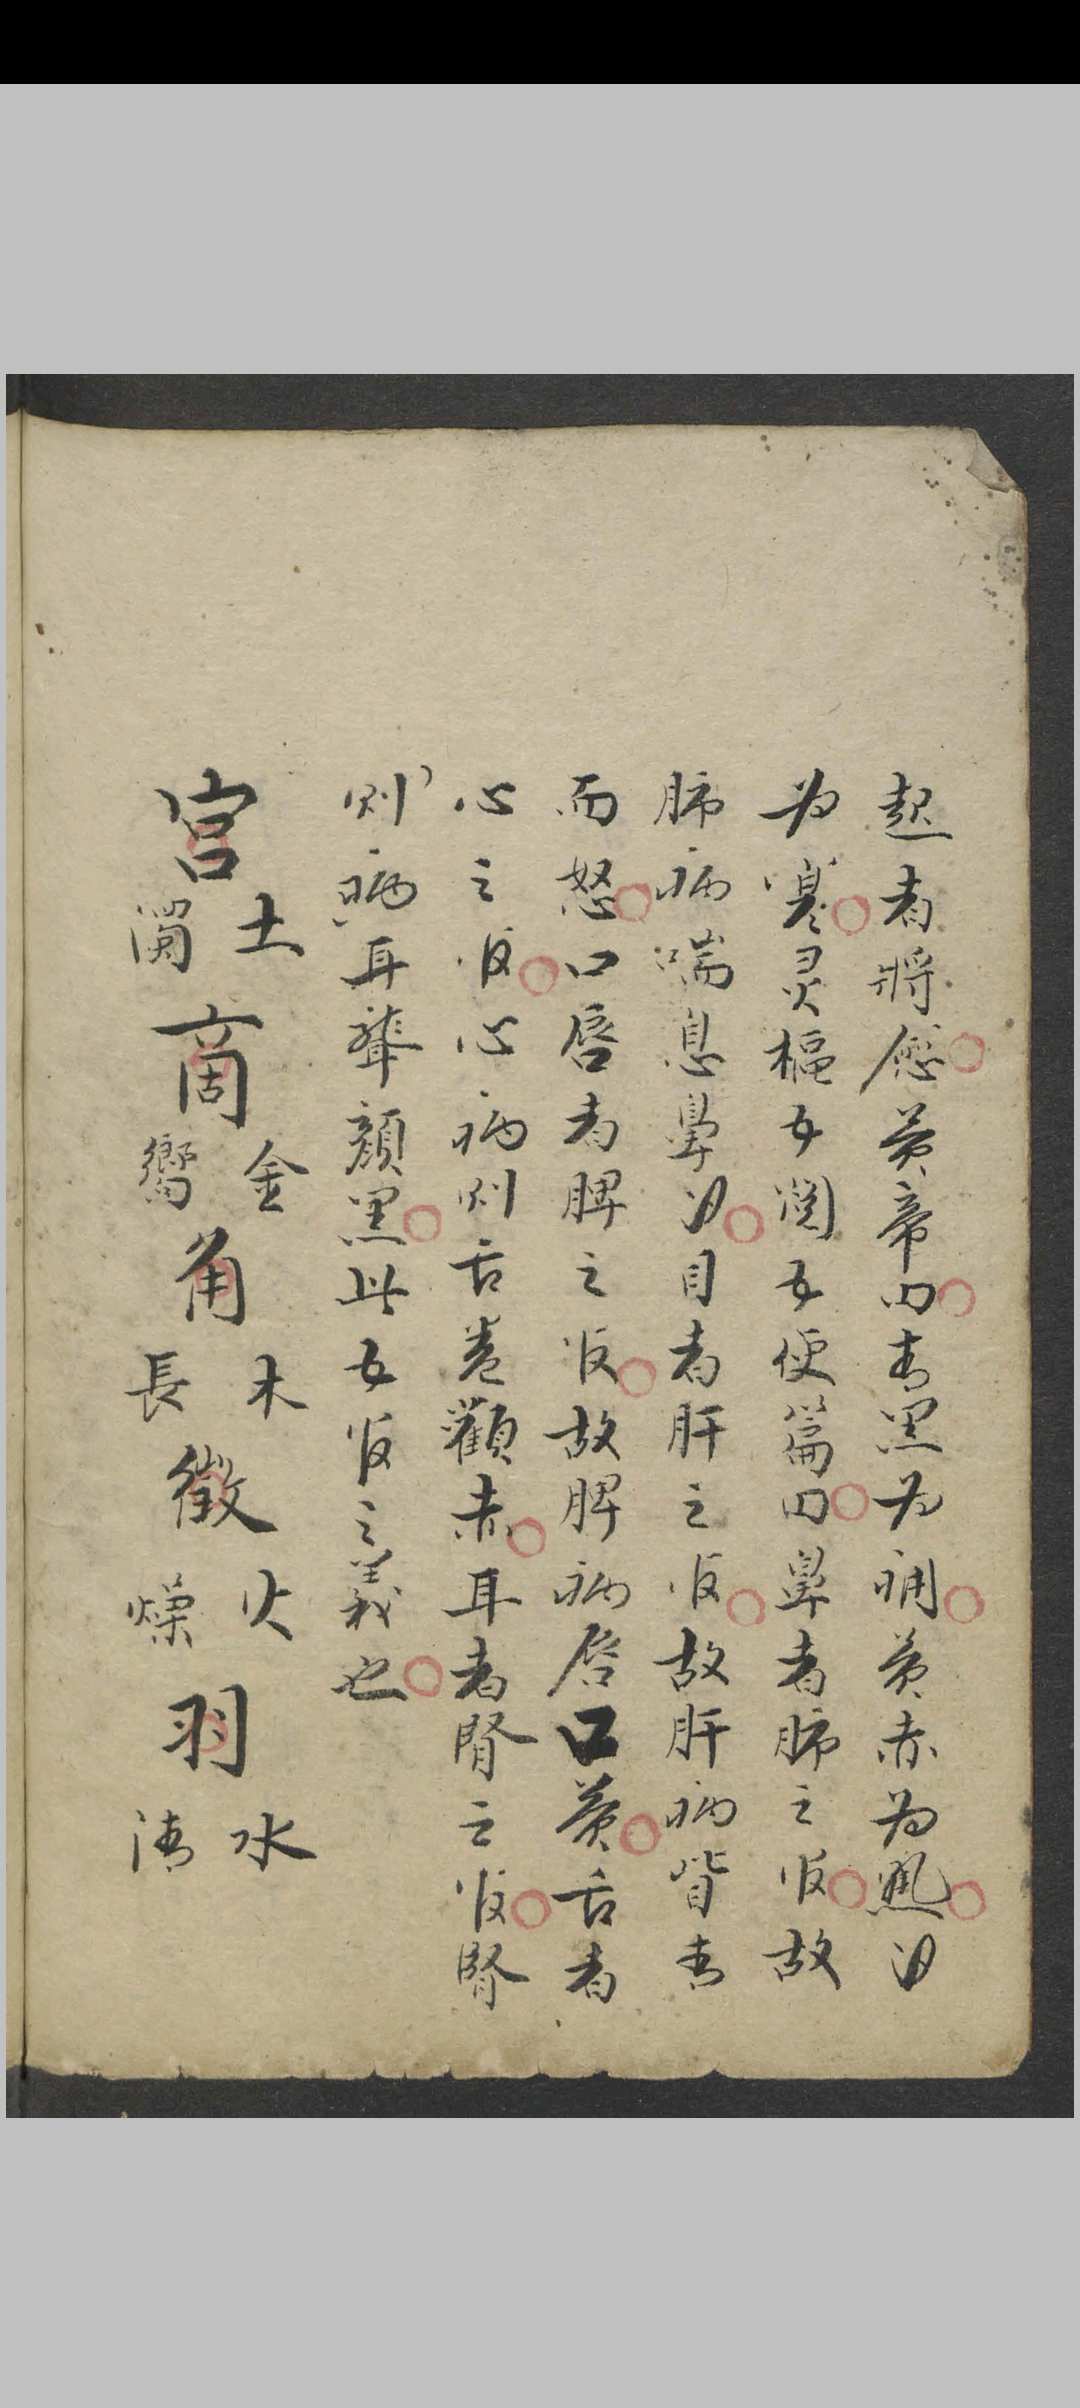 起者將愈黄帝曰青黑为痛黄赤为風白
为寒灵樞五閱五使篇曰鼻者肺之官故
肺病喘息鼻張目者肝之官故肝病眥青
而怒口唇者脾之官故脾病唇口黄舌者
心之官心病則舌卷顴赤耳者腎之官腎
則病耳聾顔黑此五官之義也
宮 土 商 金 響 角 木 長 徵 火 燥 羽 水 清